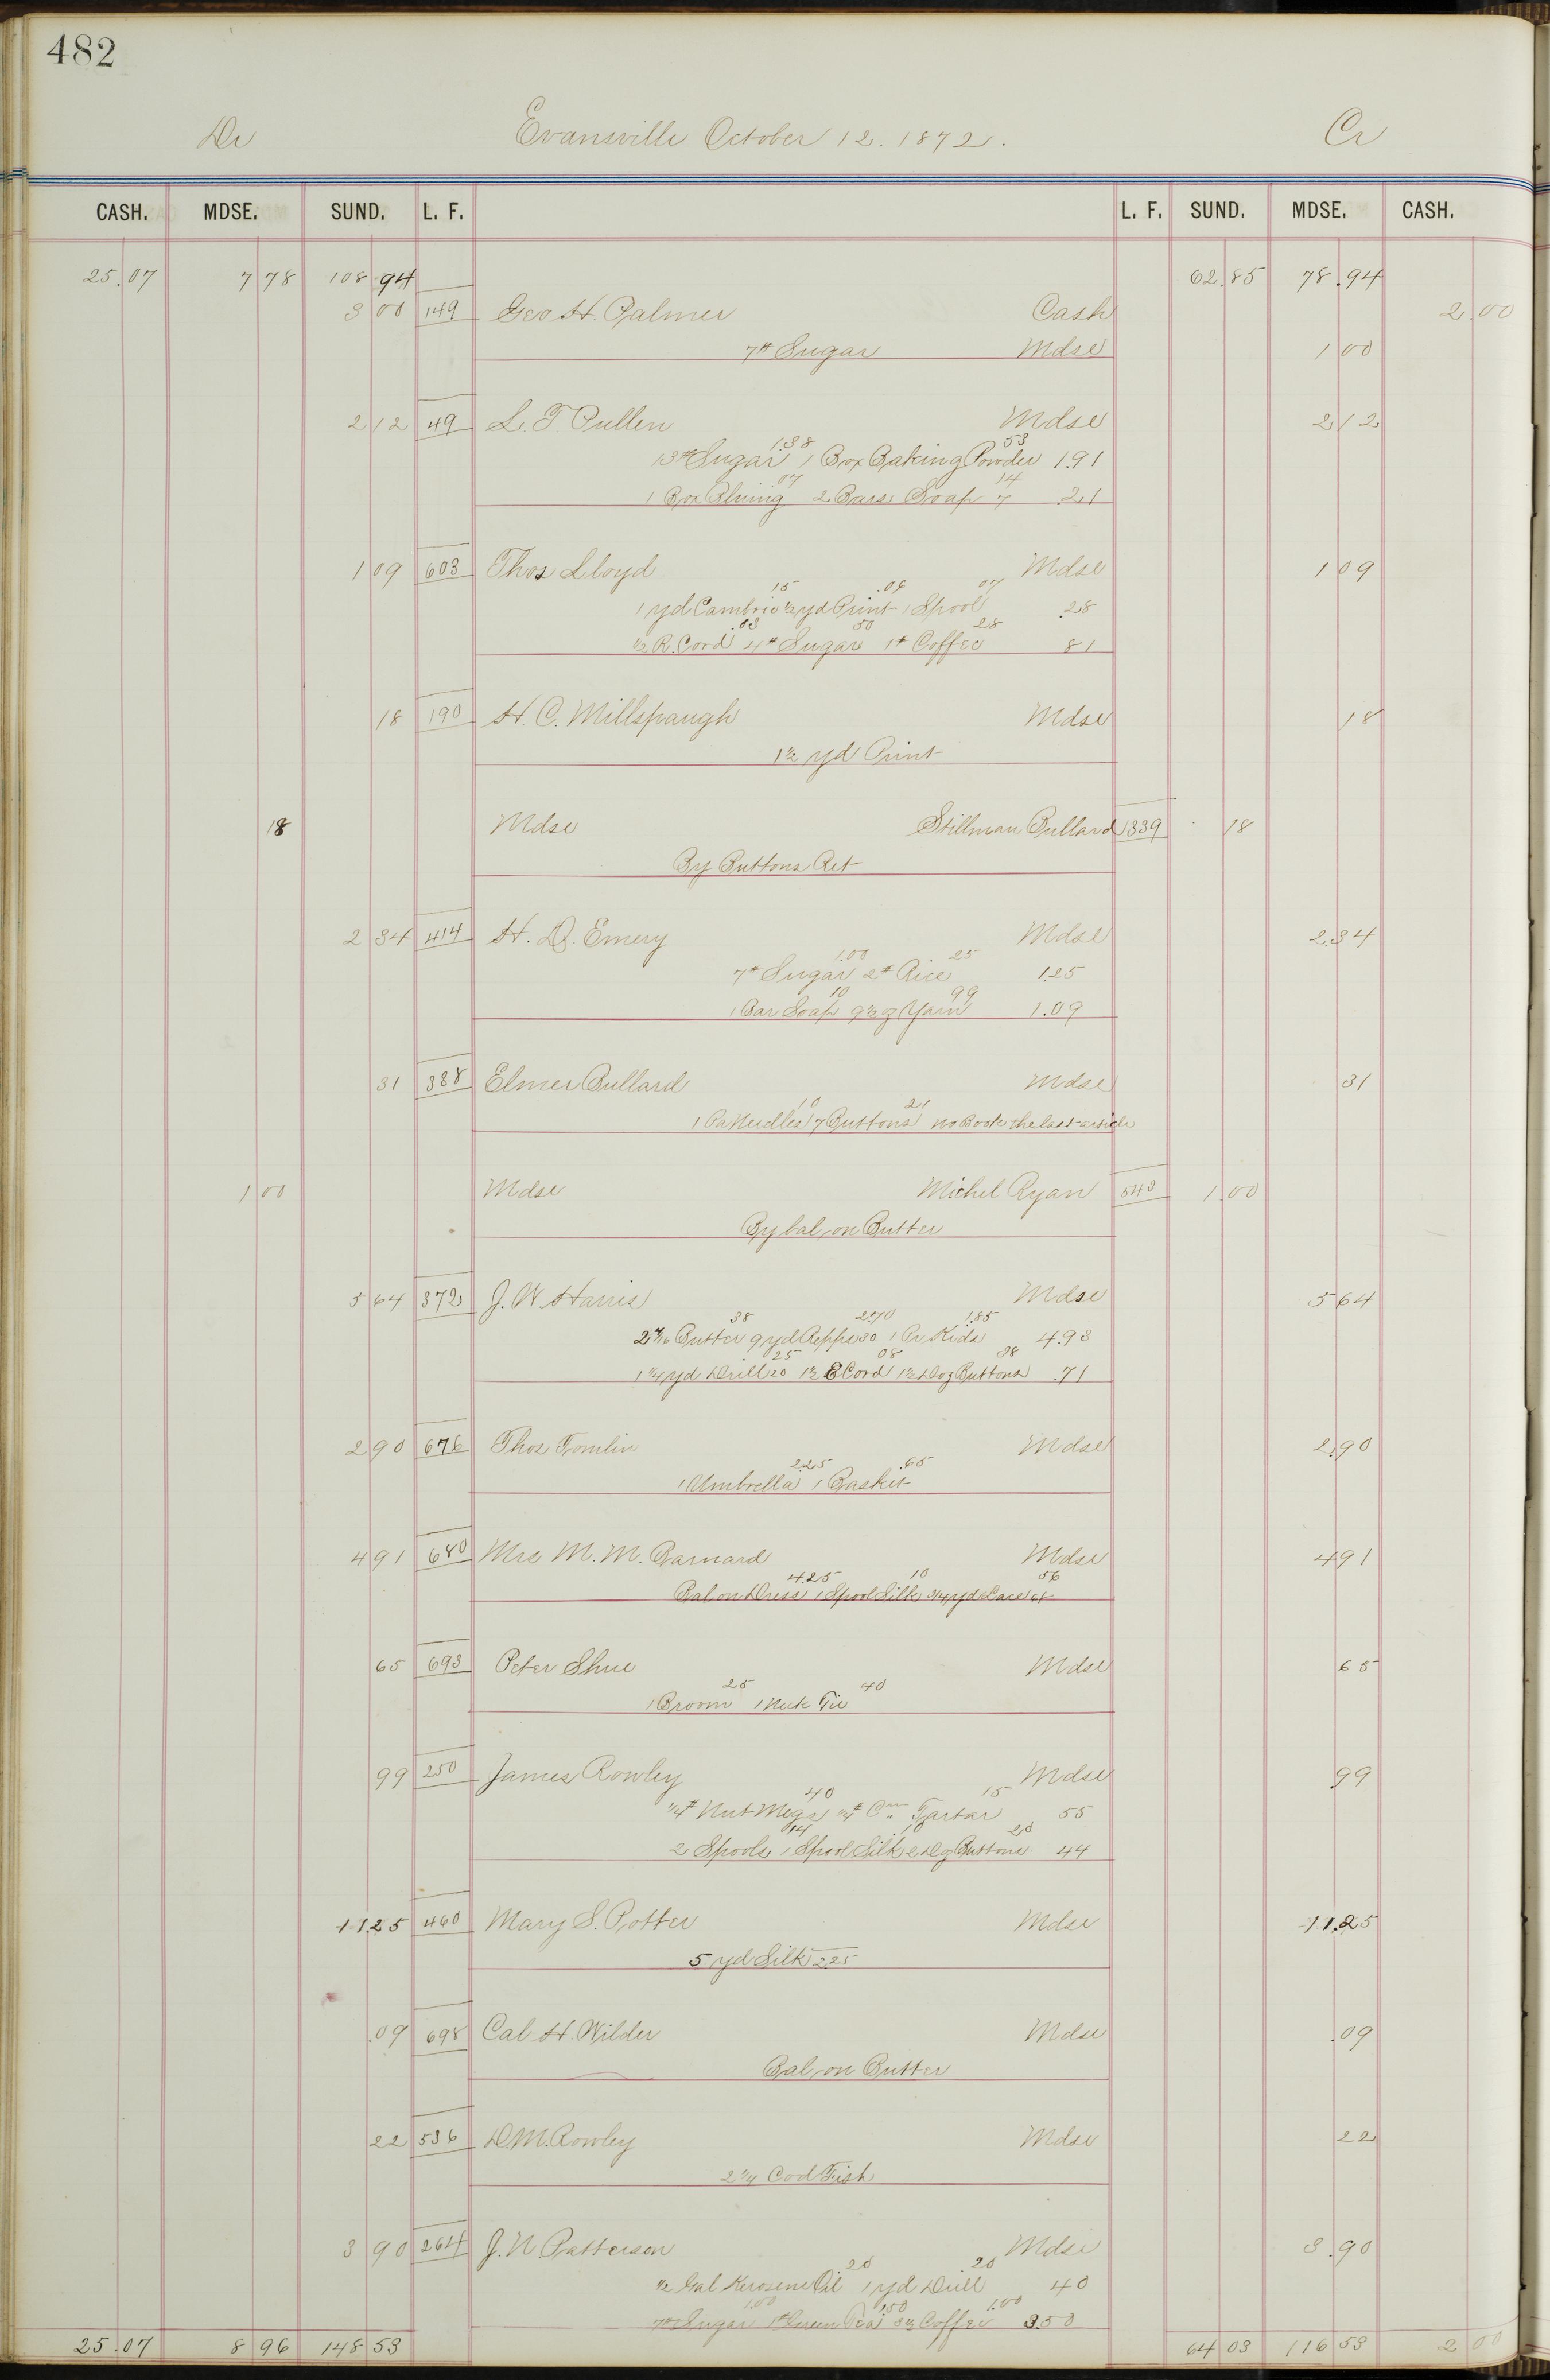 482
Dr Evansville October 12. 1872. Cr
CASH. MDSE. SUND. L. F. L. F. SUND. MDSE. CASH.
25.07 7 78 108 94 62.85 78.94
3 00 149 Geo H. Palmer Cash 2.00
7# Sugar Mdse 1 00
2 12 49 L. T. Pullen Mdse 2 12
1.38 53
13# Sugar 1 Box Baking Powder 1.91
07 14
1 Box Bluing 2 Bars Soap 7 .21
1 09 603 Thos Lloyd Mdse 1 09
15 .06 07
1 yd Cambric ½ yd Print 1 Spool .28
.03 50 28
½ R. Cord 4# Sugar 1# Coffee 81
18 190 H. C. Millspaugh Mdse 18
1½ yd Print
18 Mdse Stillman Bullard 339 18
By Buttons Ret
2 34 414 H. D. Emery Mdse 2.34
1.00 25
7# Sugar 2# Rice 1.25
10 99
1 Bar Soap 9½ Yarn 1.09
31 388 Elmer Bullard Mdse 31
10 21
1 Pa Needles 7 Buttons no Book the last article
1 00 Mdse Michel Ryan 543 1 00
By bal on Butter
5 64 372 J. W. Harris Mdse 5 64
38 2.70 1.85
Butter 9 yd Repps 30 1 Pr Kids 4.93
25 08 38
1¼ yd Drill 20 1½ E Cord 1½ Doz Buttons .71
2 90 676 Thos Tomlin Mdse 2.90
2.25 .65
1 Umbrella 1 Basket
4 91 680 Mrs M. M. Barnard Mdse 4 91
4.25 10 56
Bal on Dress 1 Spool Silk yd Lace
65 693 Peter Shue Mdse 65
25 40
1 Broom 1 Neck Tie
99 250 James Rowley Mdse .99
40 15
¼# Nut Megs ¼# Cm Tartar 55
14 10 20
2 Spools 1 Spool Silk 2 Dz Buttons 44
11.25 460 Mary S. Potter Mdse 11.25
5 yd Silk 2.25
.09 698 Cal H. Wilder Mdse .09
Bal on Butter
22 536 D. M. Rowley Mdse 22
2¾ Cod Fish
3 90 264 J. N Patterson Mdse 3.90
20 20
½ Gal Kerosene Oil 1 yd Drill 40
1.00 1.50 1.00
7# Sugar 1# Green Tea 3½ Coffee 3.50
25.07 8 96 148 53 64 03 116 53 2 00